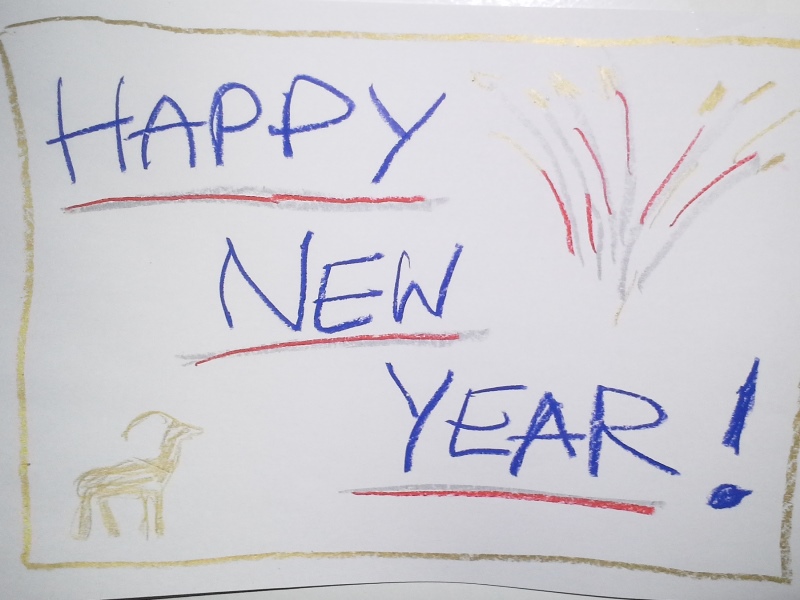 HAPPY
NEW
YEAR!